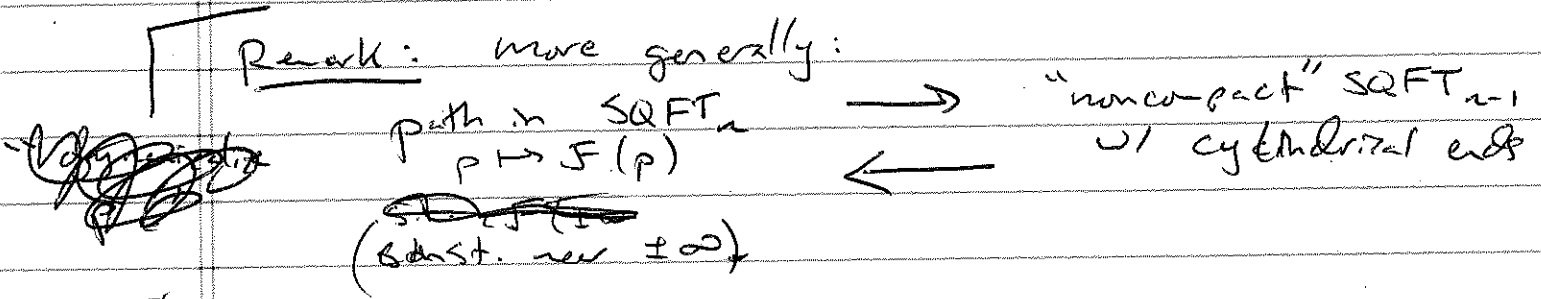 Remark: more generally:
path in SQFT_n → "noncompact" SQFT_{n-1}
p ↦ F(p) ← w/ cylindrical ends
(const. near ±∞)